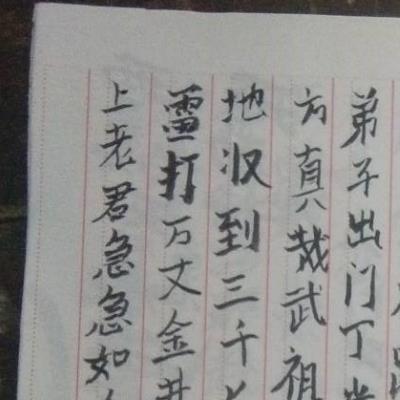 弟子出门丁
方真武祖
地汉到三千
雷打万丈金井
上老君急急如